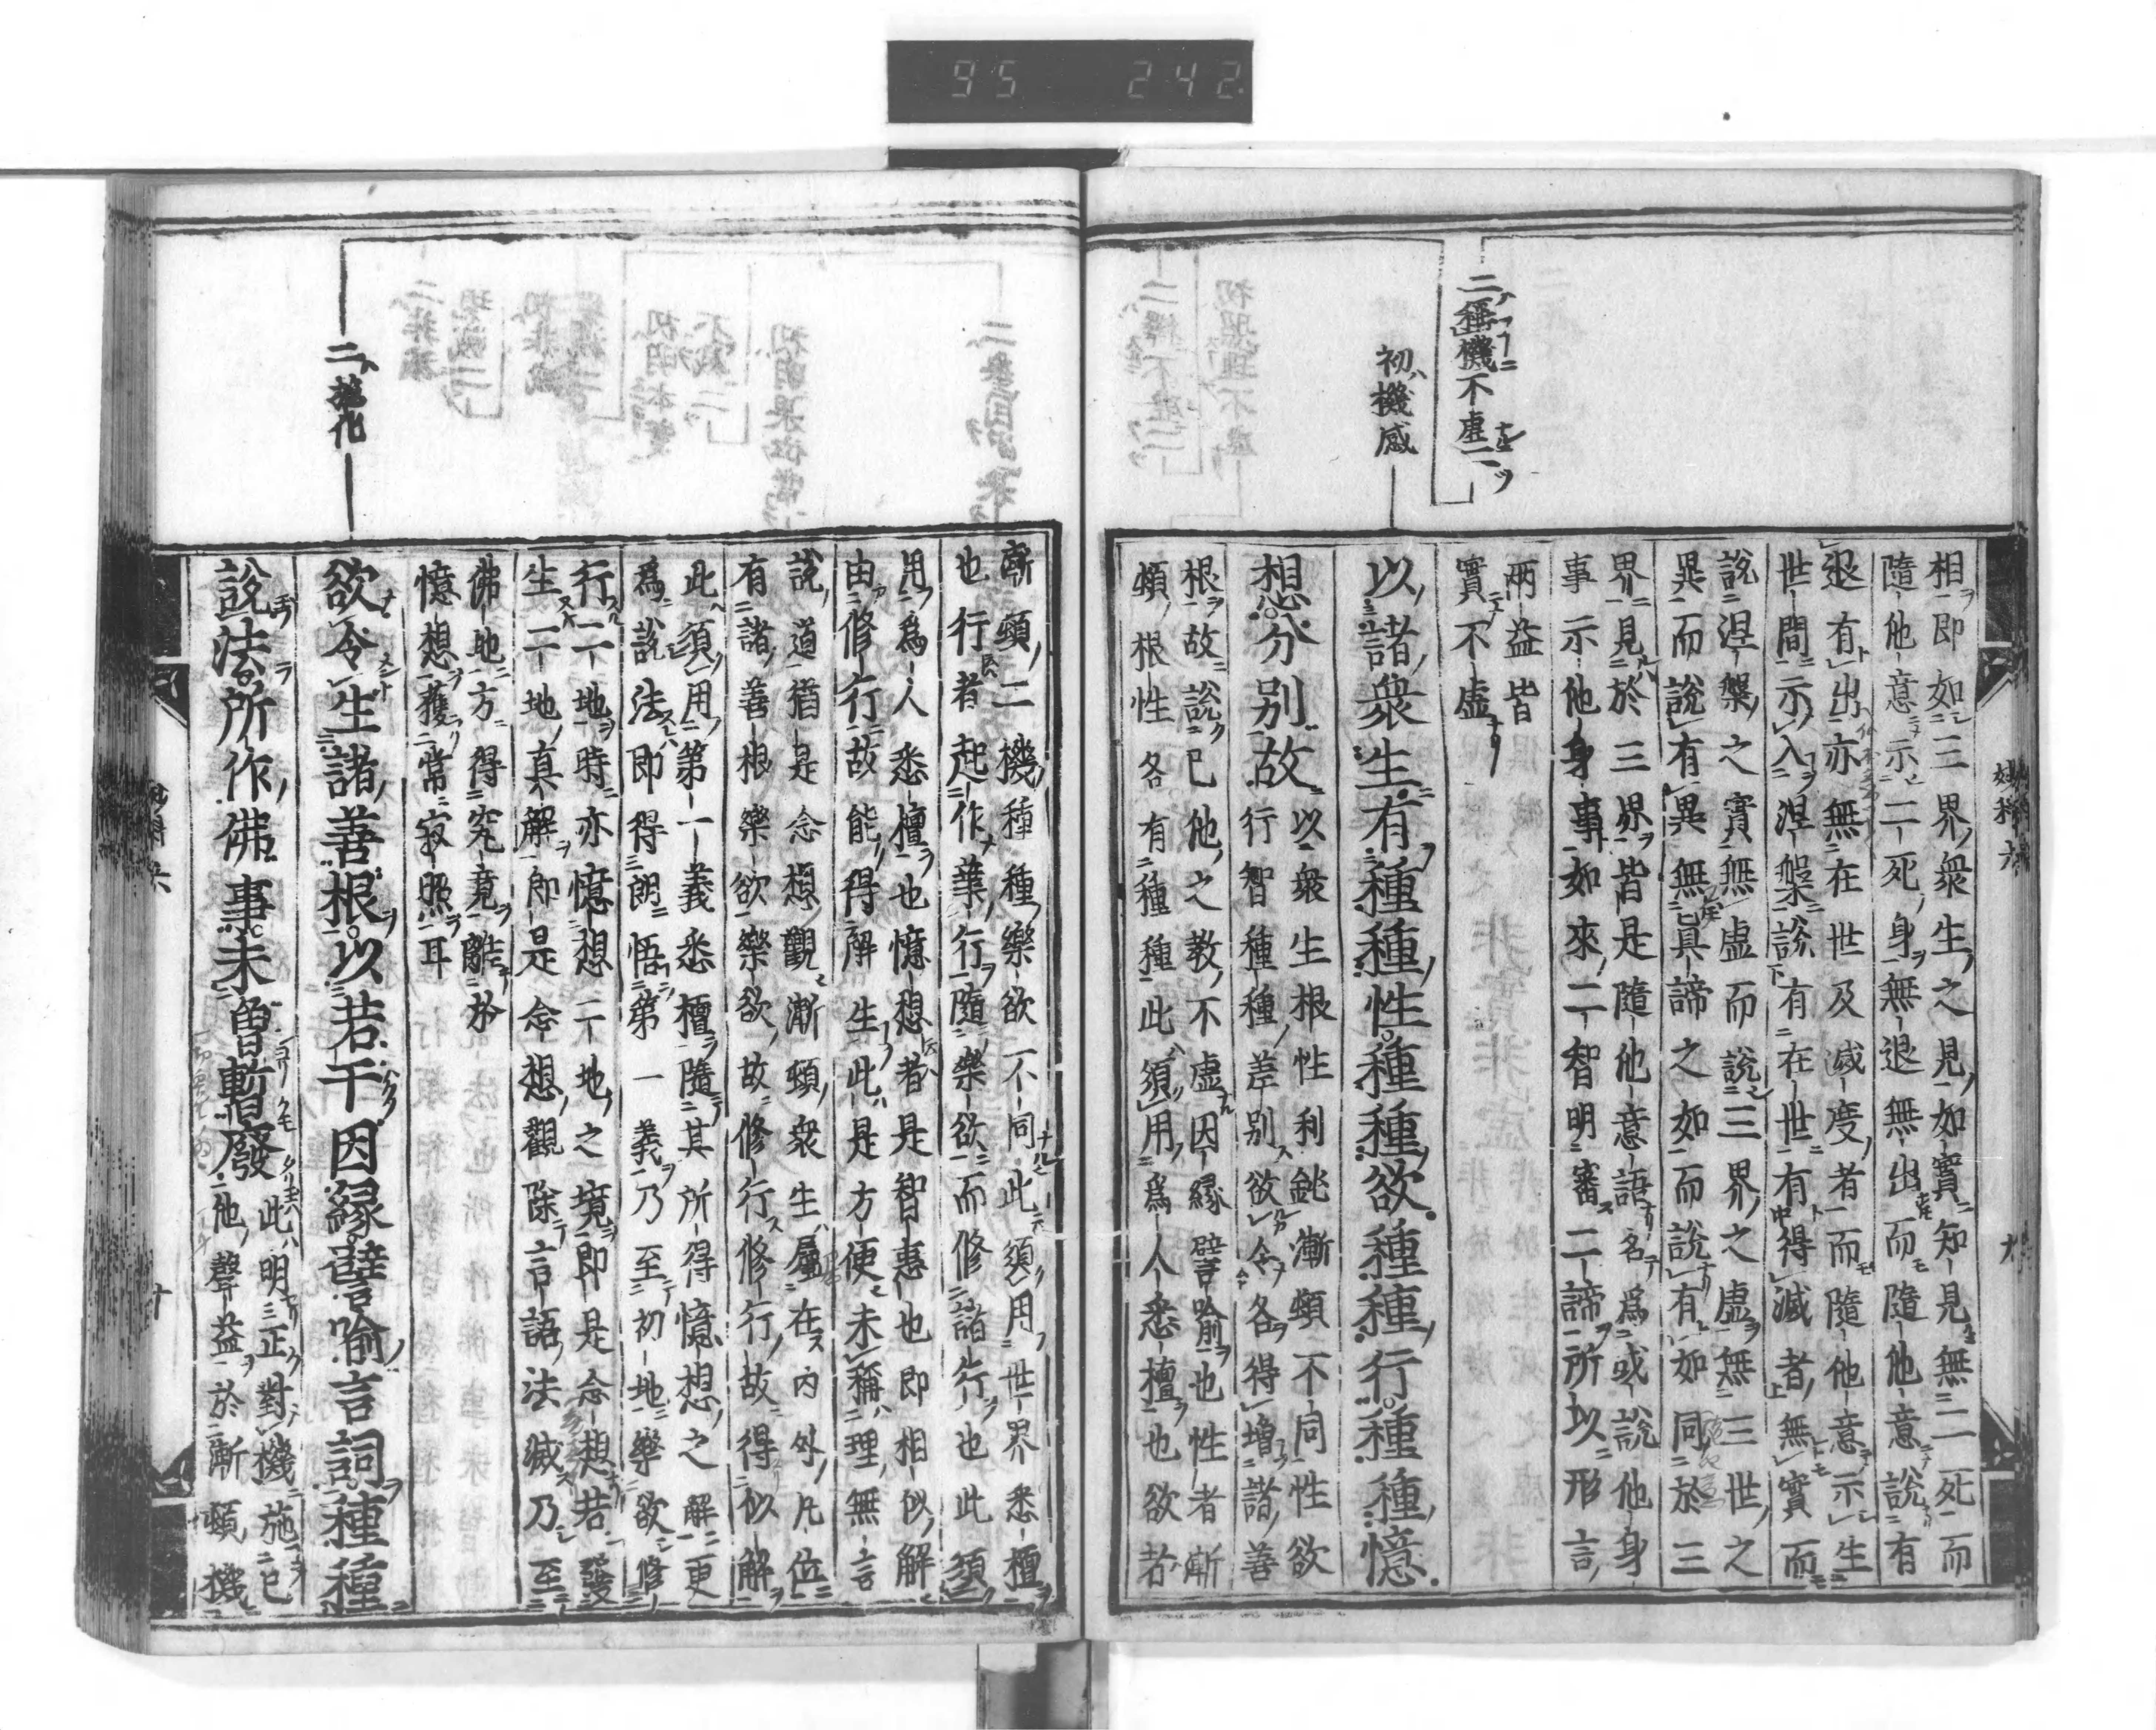 95 242
二稱機不虛二
初機感
相即如三界衆生之見如實知見無二死而
隨他意示二死身無退無出而隨他意說有
退有出亦無在世及滅度者而隨他意示生
世間示入涅槃說有在世有得滅者無實而
說涅槃之實無虛而說三界之虛無三世之
異而說有異無具諦之如而說有如同於三
界見於三界皆是隨他意語名爲或說他身
事示他身事如來二智明審二諦所以形言
兩益皆
實不虛
以諸衆生有種種性種種欲種種行種種憶
想分別故
以衆生根性利鈍漸頓不同性欲
行智種種差別欲令各得增諸善
根故說己他之教不虛因緣譬喻也性者漸
頓根性各有種種此須用爲人悉檀也欲者
妙科六
九
漸頓二機種種樂欲不同此須用世界悉檀
也行者起作業行隨樂欲而修諸行也此須
用爲人悉檀也憶想者是智惠也即相似解
由修行故能得解生此是方便未稱理無言
說道猶是念想觀漸頓衆生屬在內外凡位
有諸善根樂欲樂欲故修行修行故得似解
此須用第一義悉檀隨其所得憶想之解更
爲說法即得朗悟第一義乃至初地樂欲修
行二地時亦憶想二地之境即是念想若發
生二地真解即是念想觀除言語法滅乃至
佛地方得究竟離於
憶想獲常寂照耳
二施化
欲令生諸善根以若干因緣譬喻言詞種種
說法所作佛事未曾暫廢
此明三正對機施己
他聲益於漸頓機
十